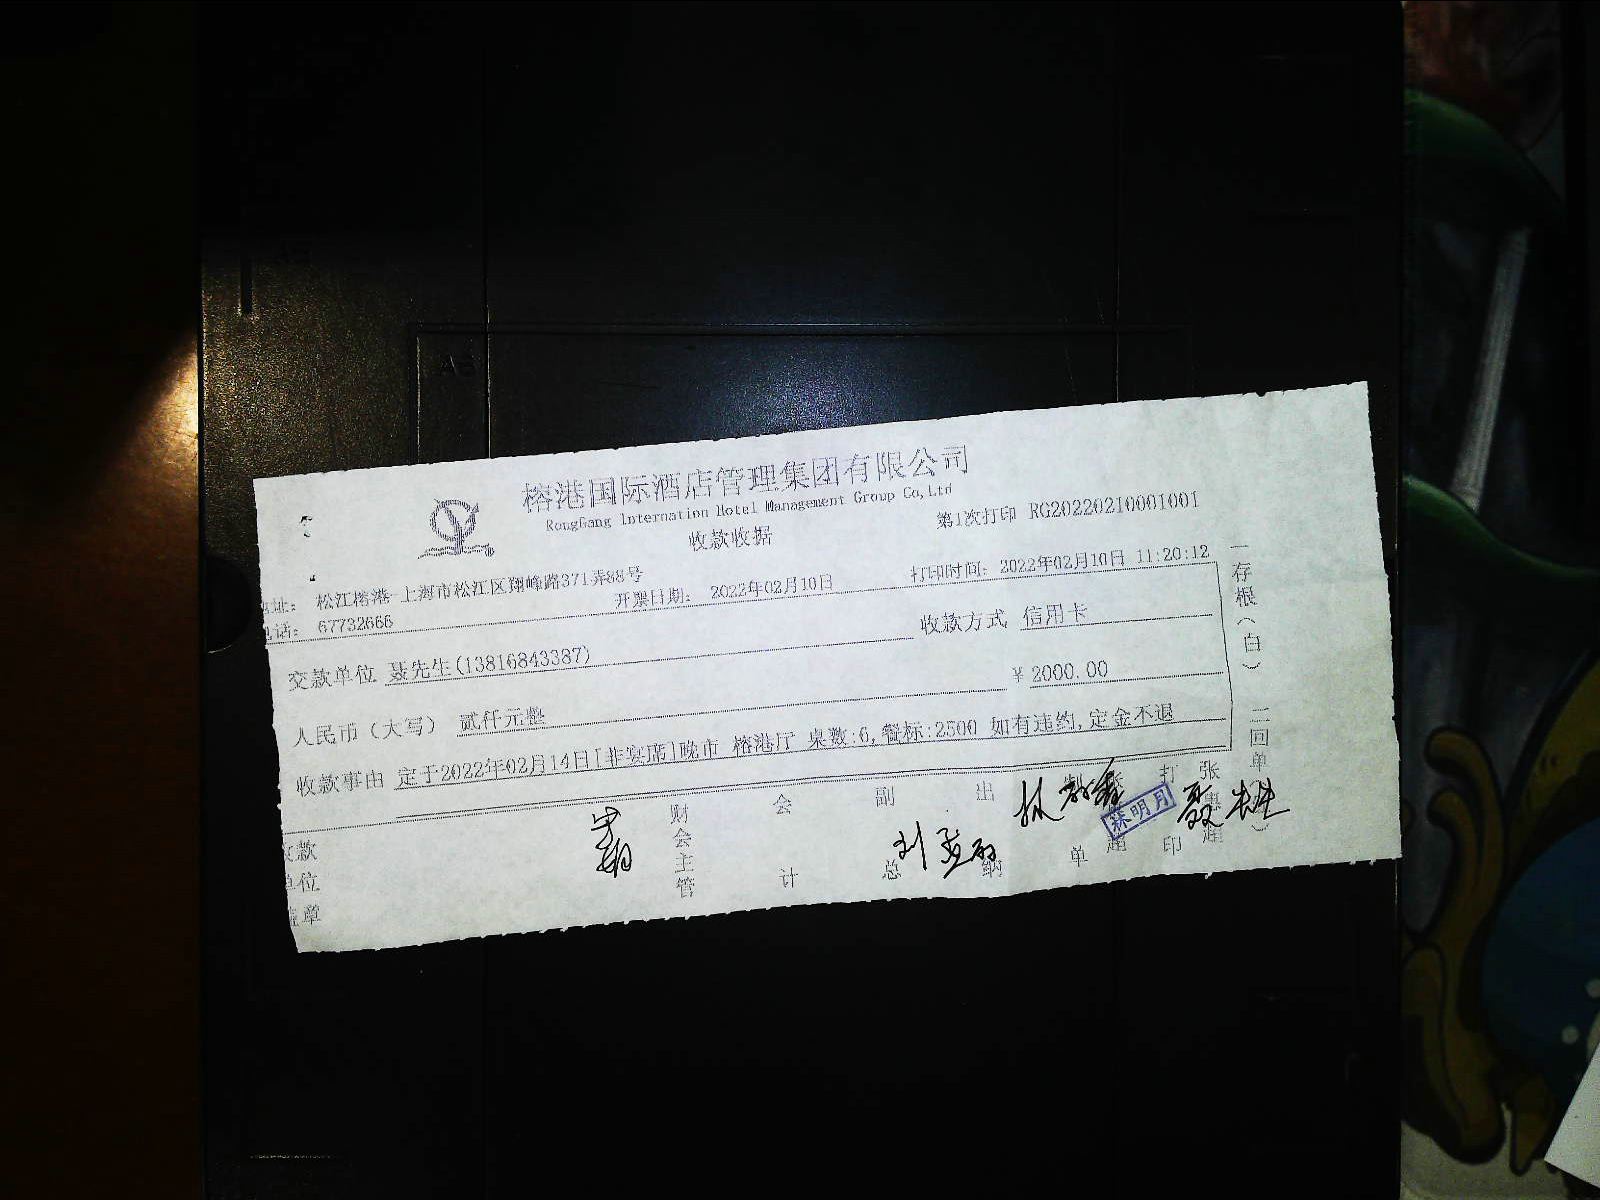 榕港国际酒店管理集团有限公司
RongGang Internation Hotel Management Group Co,Ltd
收款收据
第1次打印 RG20220210001001
地址: 松江榕港-上海市松江区翔峰路371弄88号
电话: 67732666
开票日期: 2022年02月10日
打印时间: 2022年02月10日 11:20:12
交款单位 聂先生(13816843387)
收款方式 信用卡
人民币(大写) 贰仟元整
¥ 2000.00
收款事由 定于2022年02月14日[非宴席]晚市 榕港厅 桌数:6,餐标:2500 如有违约,定金不退
一存根(白) 二回单
收款单位盖章
财会主管
会计
副总
出纳
单
打印
森明月
A5